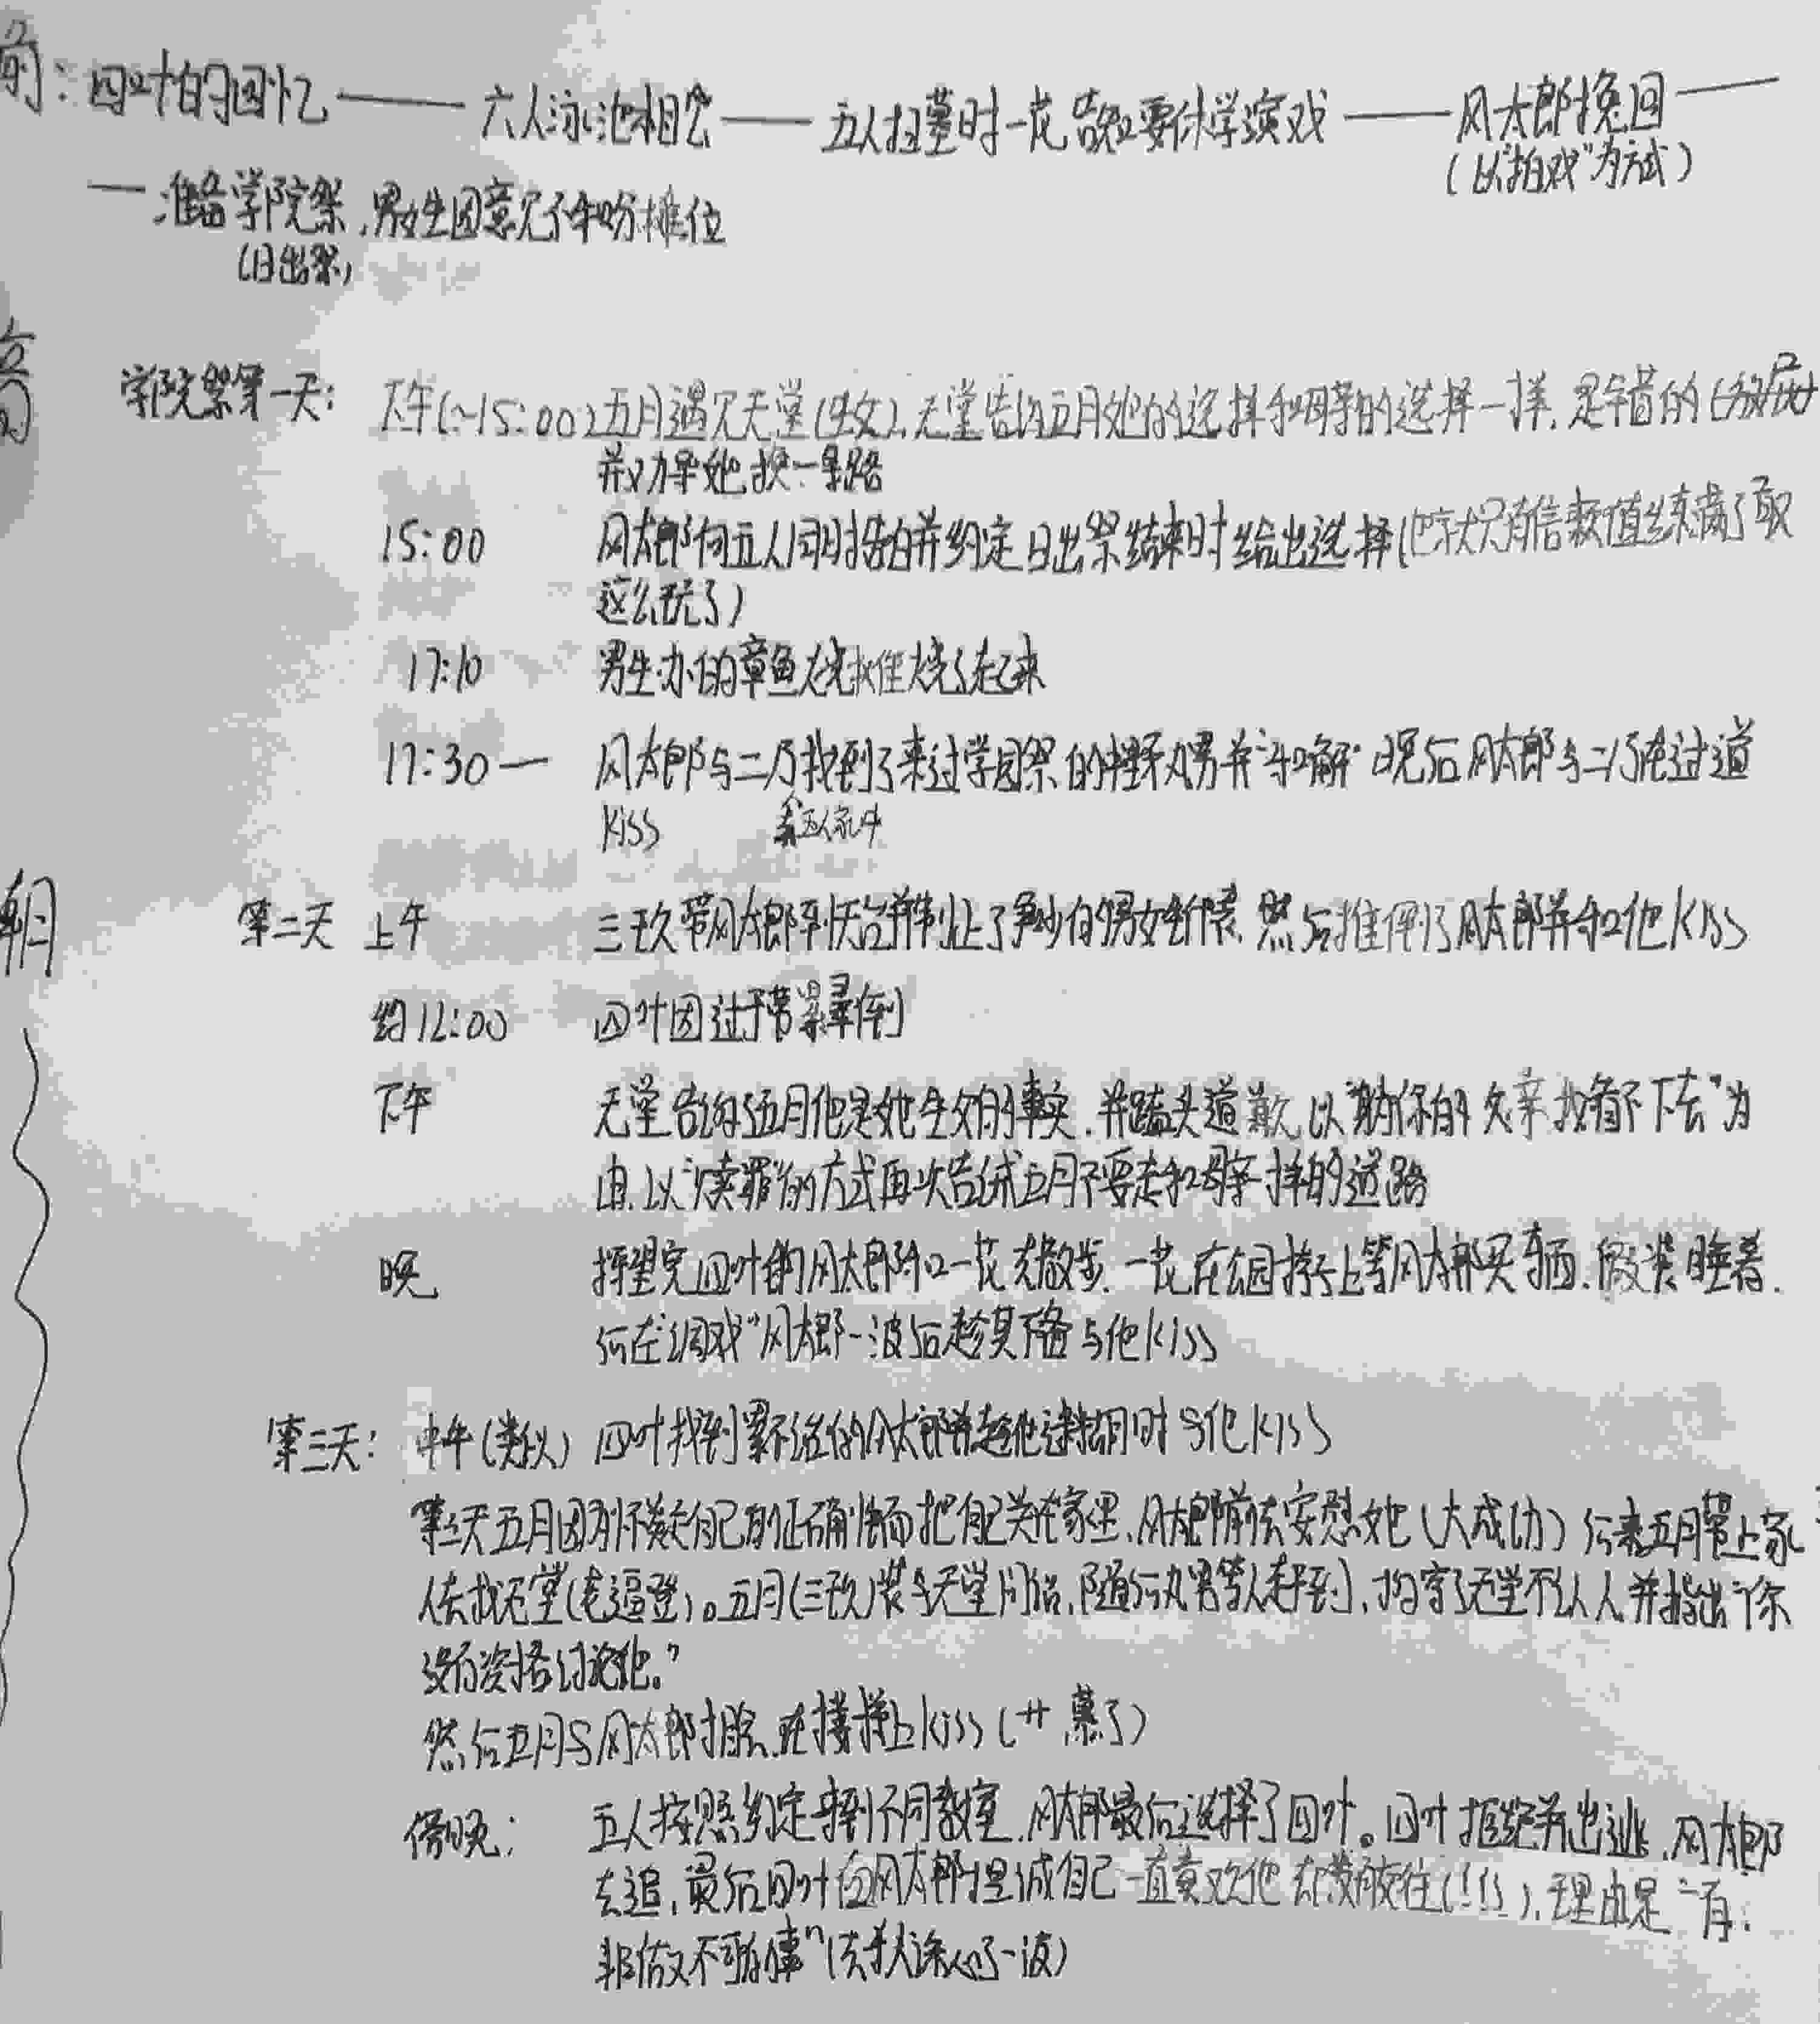 前：四叶的回忆——六人泳池相会——五人扫墓时一花告知要休学演戏——风太郎挽回——
（以"拍戏"为方式）
—准备学院祭，男女生因意见不合吵摊位
（日出祭）
学院祭第一天：
下午(~15:00) 五月遇见无堂(生父)，无堂告知五月她的选择和母亲的选择一样，是错的
并劝早她换一条路
15:00 风太郎向五人同时告白并约定日出祭结束时给出选择(
这么玩了）
17:10 男生办的章鱼烧摊位烧了起来
17:30— 风太郎与二乃找到了来过学园祭的中野丸男并"和解" 晚后风太郎与二乃在过道
kiss 在五人家中
朝
第二天 上午 三玖带风太郎到天台并制止了争吵的男女生代表，然后推倒了风太郎并和他kiss
约12:00 四叶因过于劳累晕倒
下午 无堂告知了五月他是她生父的事实，并磕头道歉，以"身为你的父亲我看不下去"为
由，以"赎罪"的方式再次告诫五月不要走和母亲一样的道路
晚 探望完四叶的风太郎和一花去散步，一花在公园椅子上等风太郎买东西，假装睡着，
后在"调戏"风太郎一波后趁其不备与他kiss
第三天： 中午(类似) 四叶找到累不行的风太郎并趁他迷糊时与他kiss
第三天五月因为不敢走自己的正确路而把自己关在家里，风太郎前去安慰她（大成功）后来五月带上家
人去找无堂(老逼登)。五月(三玖)装与无堂问话，随后丸男等人走到，均害了无堂不认人并指出"你
没有资格讨论他。"
然后五月与风太郎摊，在楼梯上kiss（艹，慕了）
傍晚： 五人按照约定来到不同教室，风太郎最后选择了四叶。四叶拒绝并出逃，风太郎
去追，最后四叶向风太郎坦诚自己一直喜欢他却没有交往(!!!)，理由是"有
非做不可的事"（夫